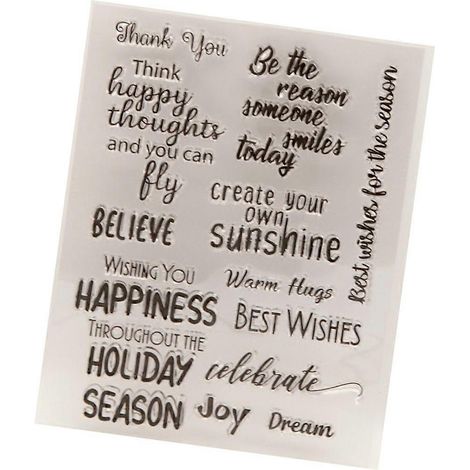 Thank You
Think
happy
thoughts
and you can
fly
Be the
reason
someone
smiles
today
Best wishes for the season
create your
own
sunshine
BELIEVE
WISHING YOU
HAPPINESS
THROUGHOUT THE
HOLIDAY
SEASON
Warm Hugs
BEST WISHES
celebrate
Joy
Dream